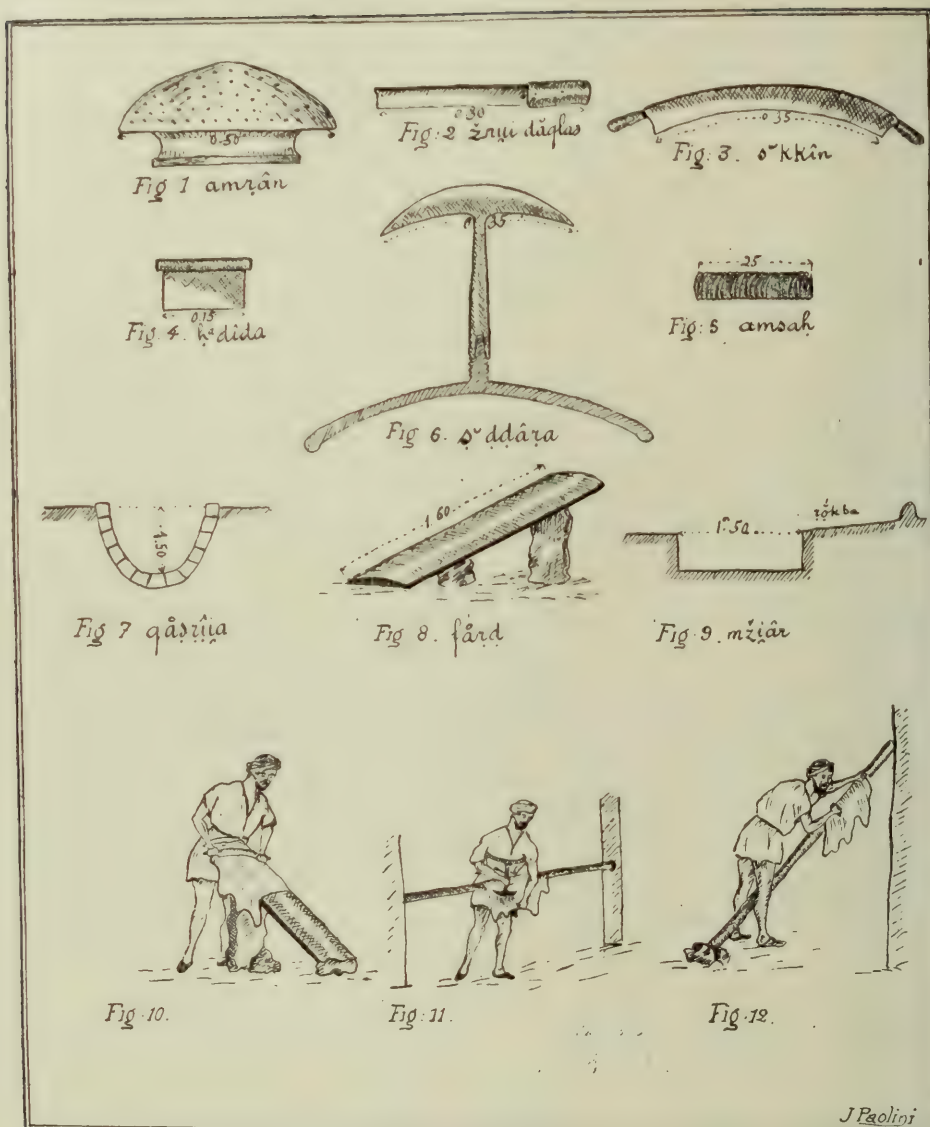 0.50
Fig 1 amrân
0.30
Fig: 2 žruị dăqlas
0.35
Fig: 3. sᵘkkîn
0.15
Fig. 4. ḥᵃdîda
25
Fig: 5 amsaḥ
0 35
Fig 6. ṣᵘḍḍâṛa
1.50
Fig 7 qåṣrîịa
1.60
Fig 8. fårḍ
1ᵐ.50
rǒkba
Fig 9. mžịâr
Fig.10.
Fig:11.
Fig.12.
J Paolini